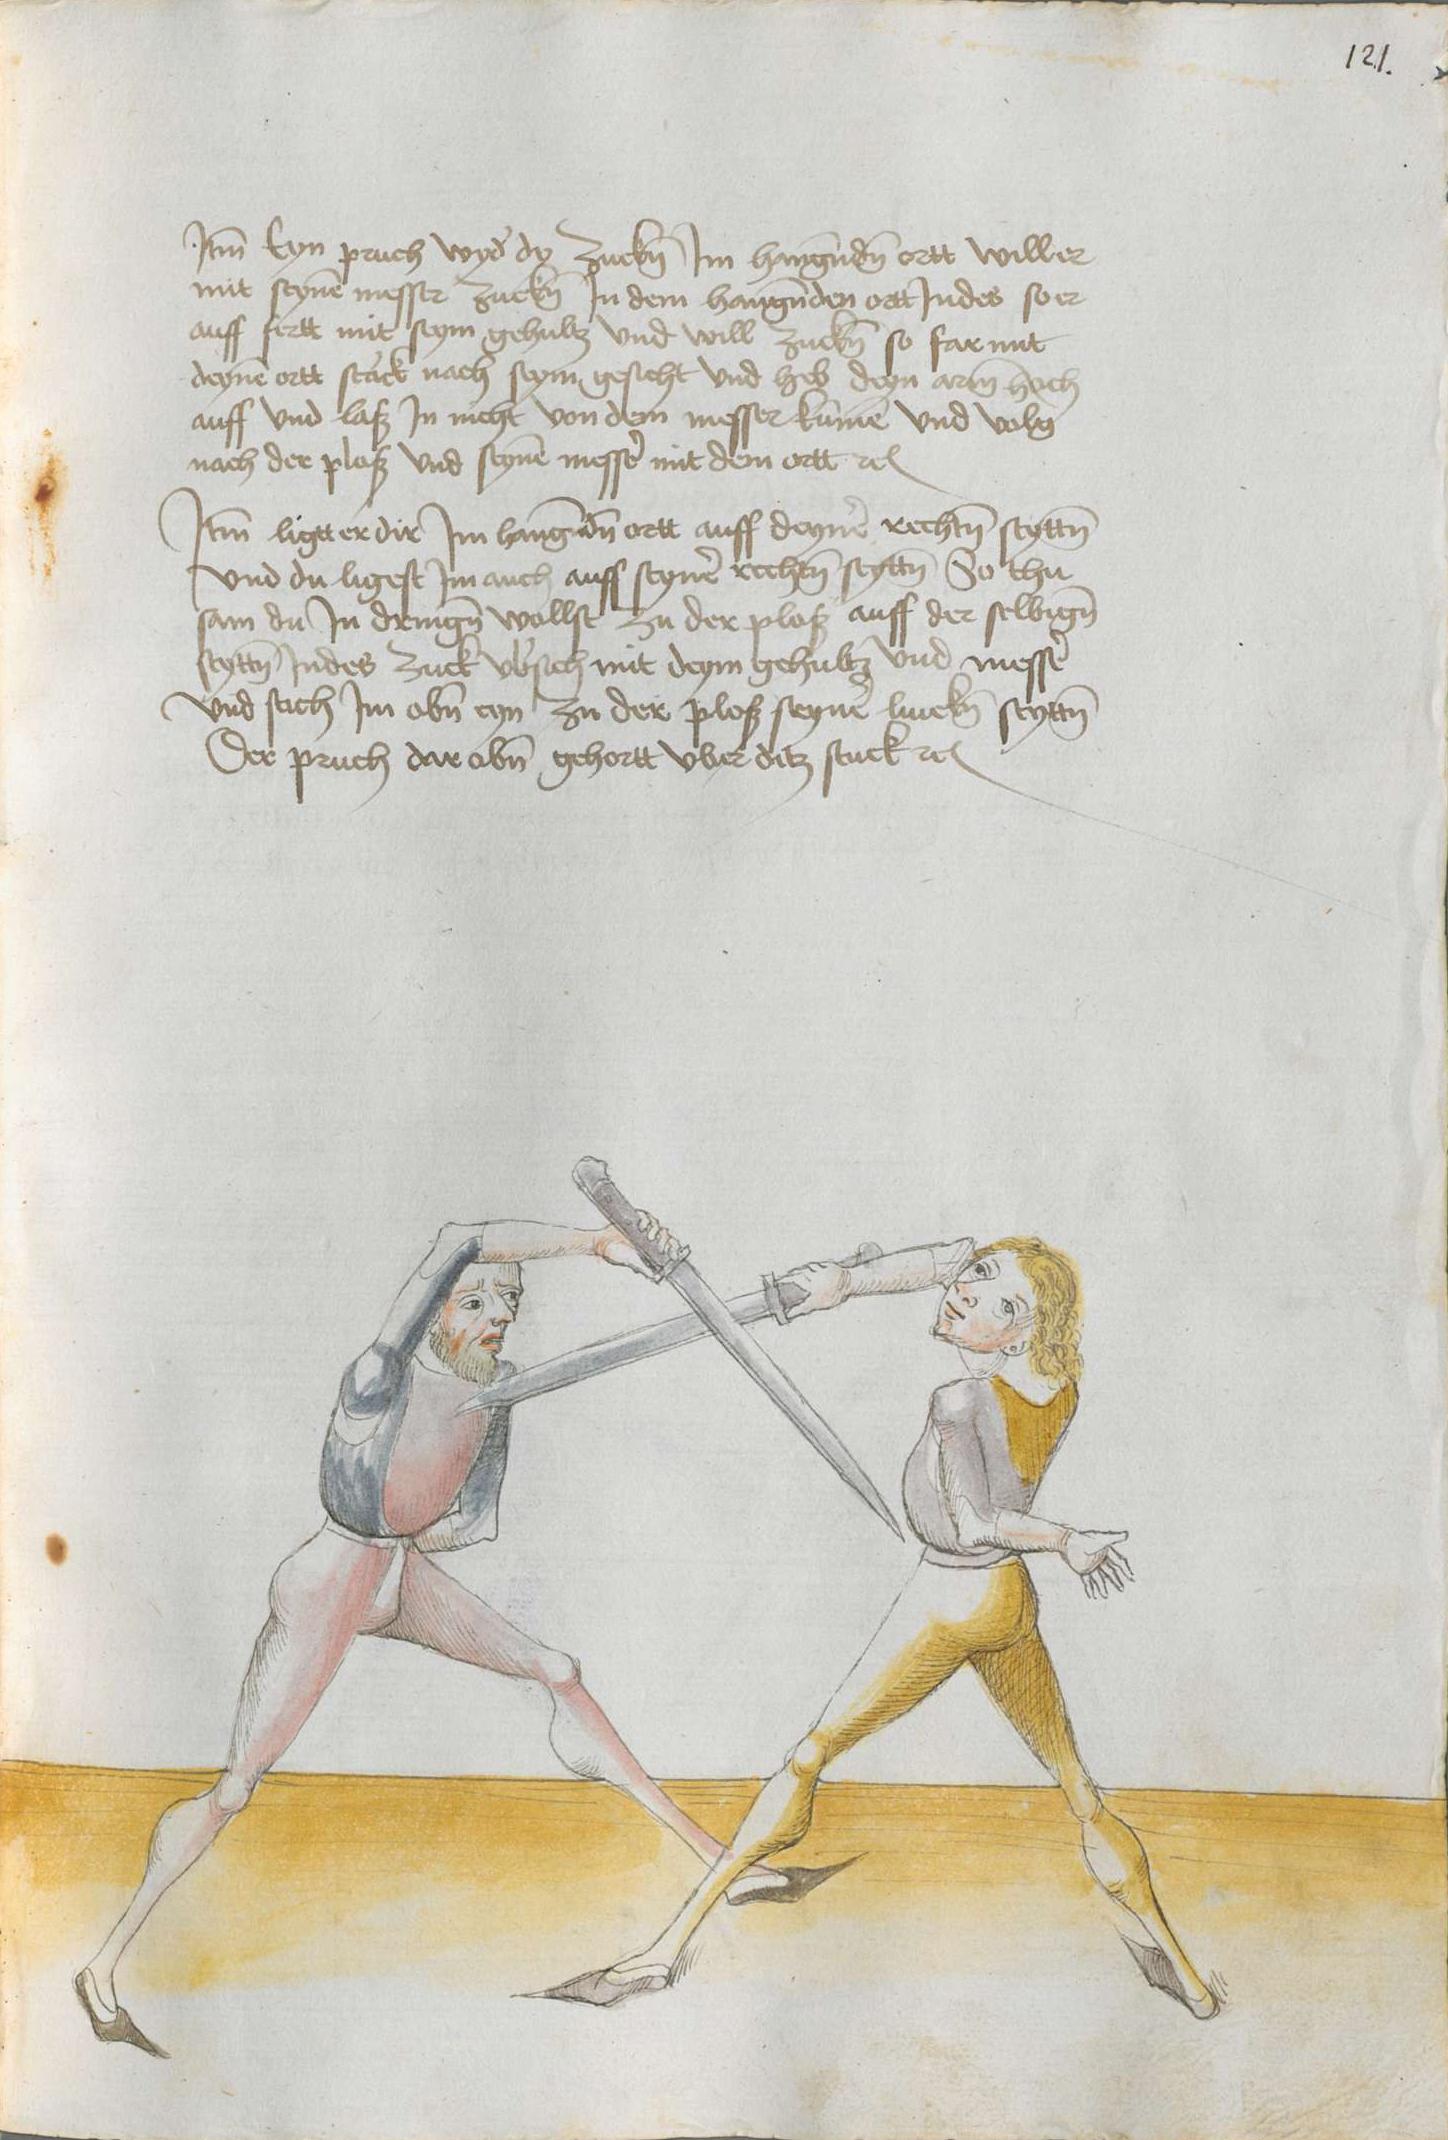 121.
Itm̄ Eyn pruch wyd̄ dy zuckn̄ Im hangn̄dn̄ ortt will er
mit seynē messer zuckn̄ In dem hangn̄den ortt Indes so er
auff fertt mit seym gehultz vnd will zuckn̄ so far mit
deynē ortt starck nach seym gesicht vnd heb deyn arm̄ hoch
auff vnd laß In nicht von dem messer kūmē vnd volg
nach der ploß vnd seynē messer̄ mit dem ortt rc
Itm̄ ligtt er dir Im hangn̄dn̄ ortt auff deyner̄ rechtn̄ seyttn̄
vnd du ligest Im auch auff seyner̄ rechtn̄ seyttn̄ So thu
sam du In dringn̄ wollst zu der ploß auff der selbign̄
seyttn̄ Indes zuck vbersich mit deym gehultz vnd messer̄
vnd stich Im obn̄ eyn zu der ploß seyner̄ linckn̄ seyttn̄
Der pruch dar obn̄ gehortt vber ditz stuck rc